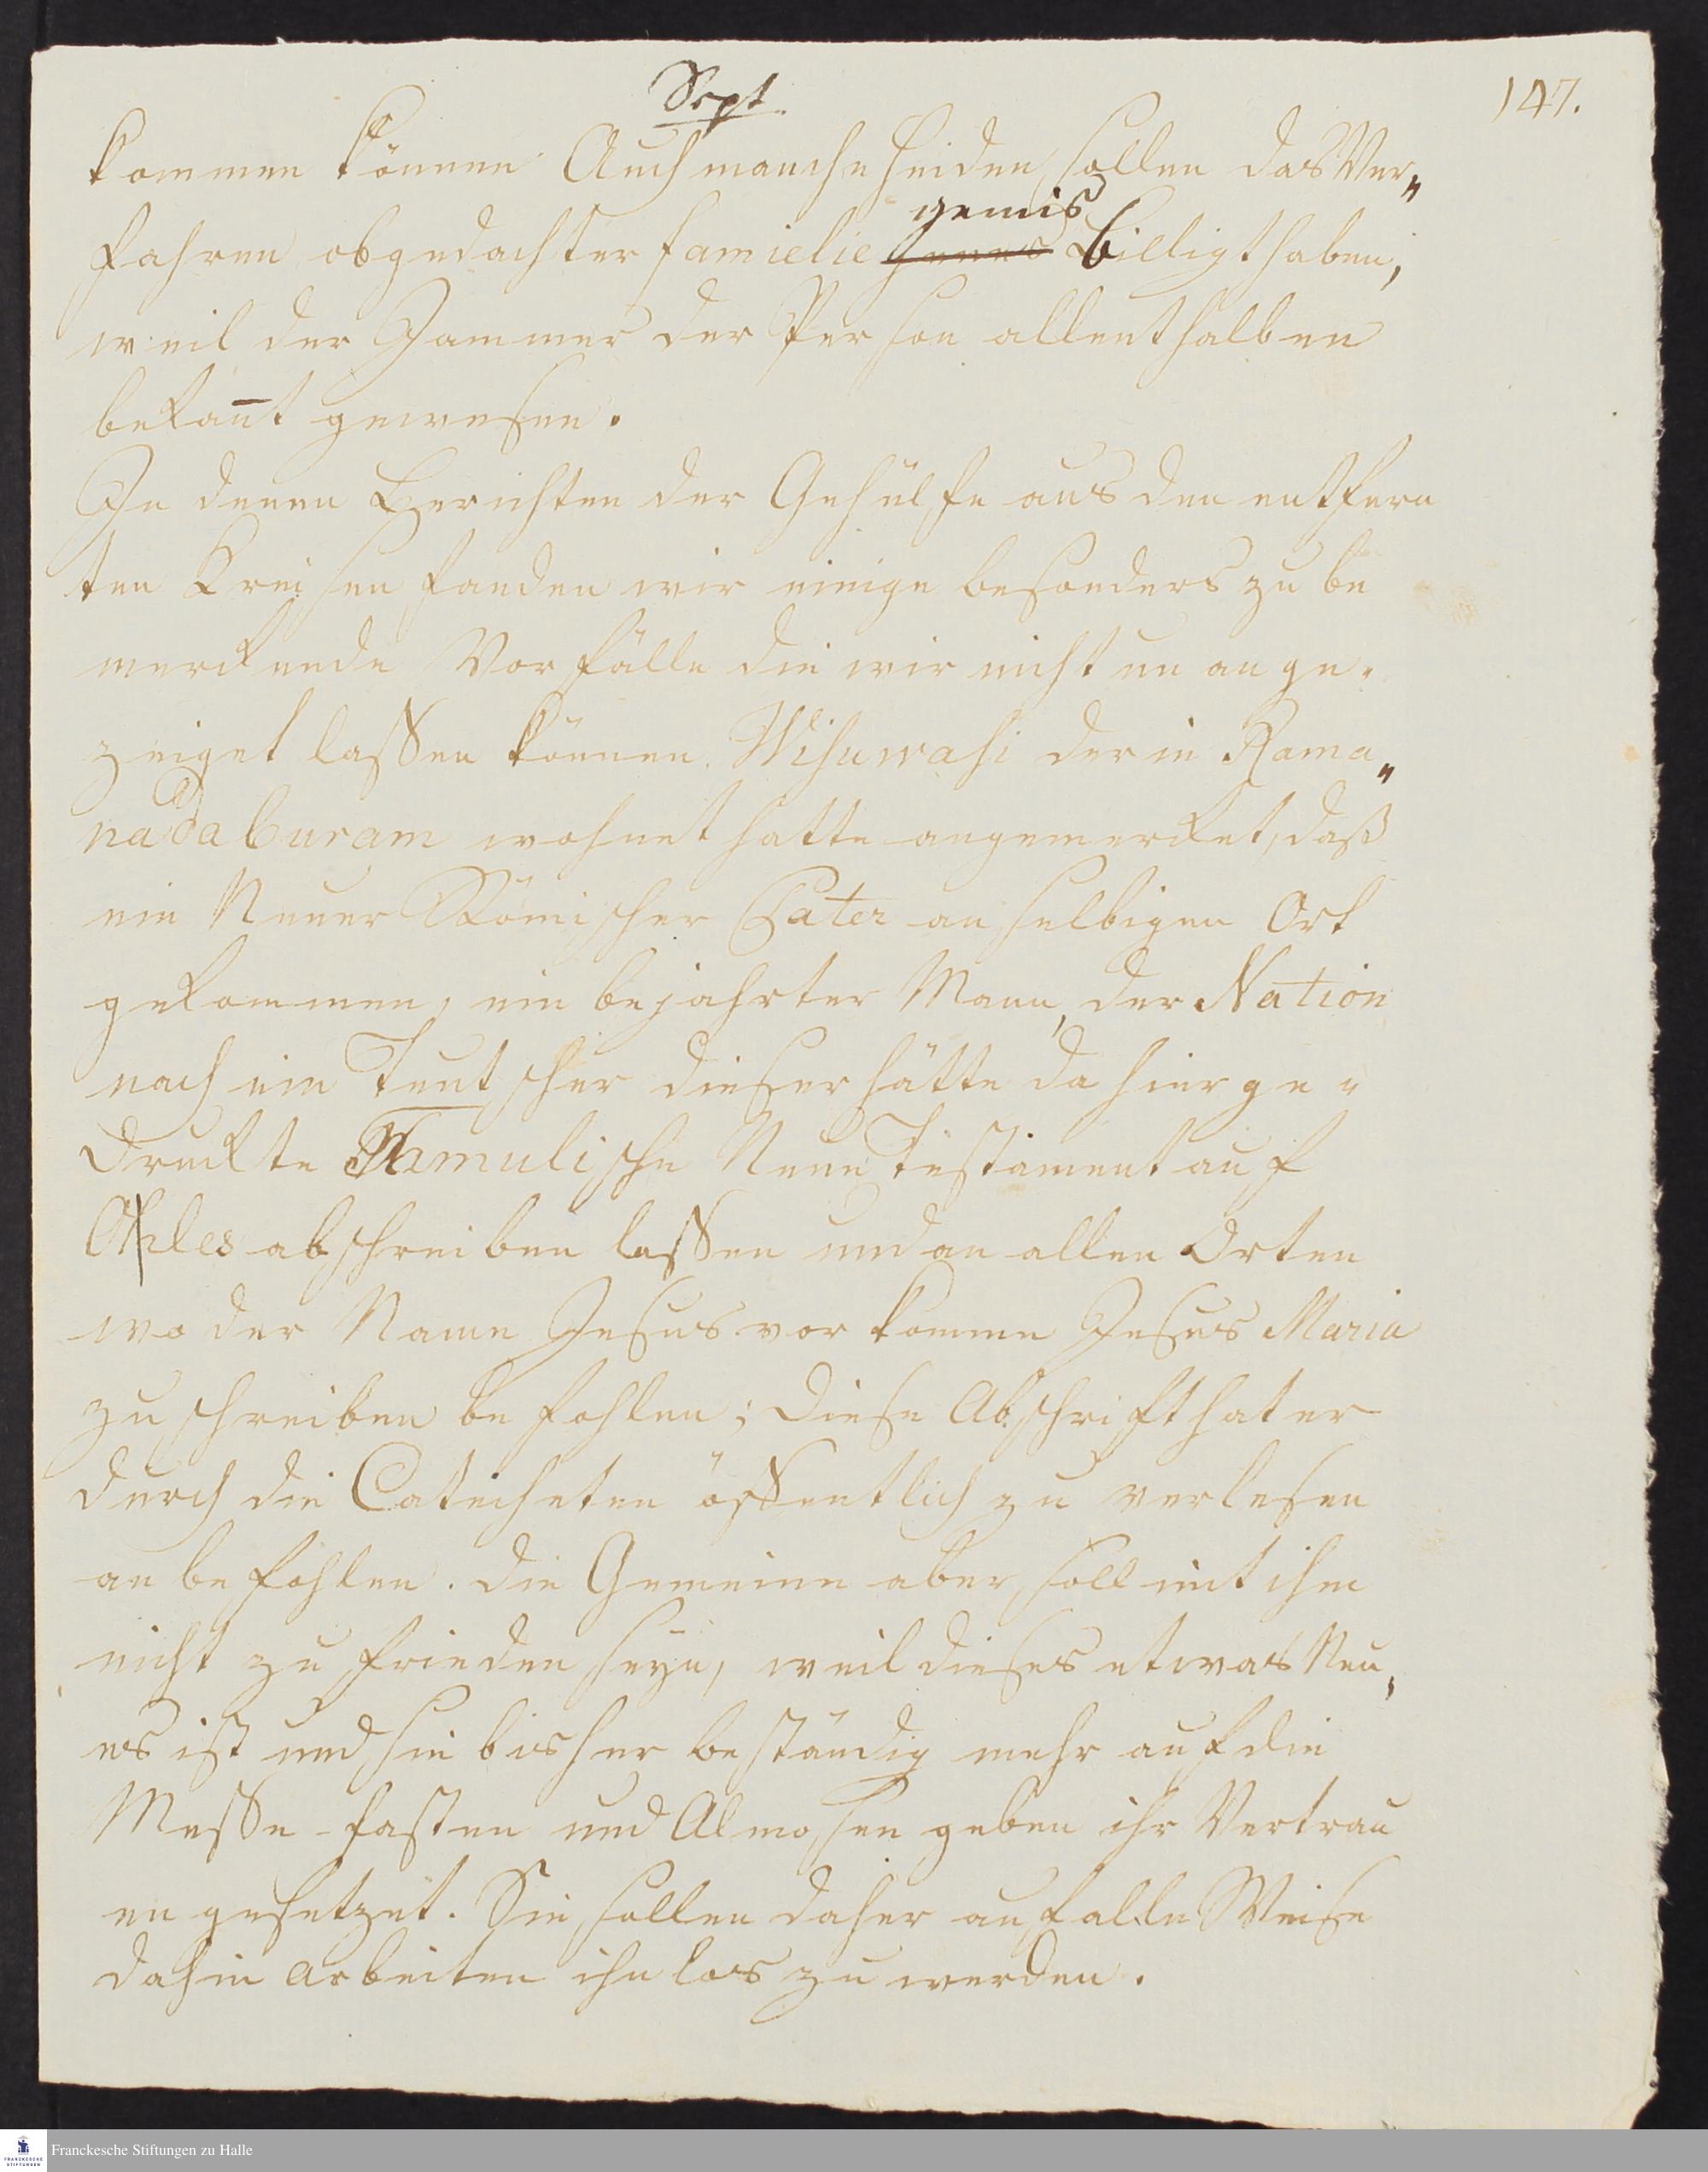 Sept.
147.
kommen können Auch manche Heiden sollen das Ver„
gemis
fahren obgedachter familie billigt haben,
weil der Jammer der Person allenthalben
bekan̄t gewesen.
In denen Berichten der Gehülfe aus den entfern
ten Kreisen fanden wir einige besonders zu be
merckende Vorfälle die wir nicht un ange-
zeiget lassen können. Wisuwasi der in Rama„
nadaburam wohnet hatte angemercket, daß
ein Neuer Römischer Pater an selbigen Ort
gekommen, ein bejahrter Mann, der Nation
nach ein Teutscher dieser hätte da hier ge-
druckte Tamulische Neue Testament auf
Oles abschreiben lassen und an allen Orten
wo der Name Jesus vor komme Jesus Maria
zu schreiben befohlen; diese Abschrift hat er
durch die Catecheten öffentlich zu verlesen
anbefohlen. die Gemeine aber soll mit ihm
nicht zu frieden seyn, weil dieses etwas Neu„
es ist und sie bisher beständig mehr auf die
Messe-fasten und Almosen geben ihr Vertrau
en gesetzet. Sie sollen daher auf alle Weise
dahin arbeiten ihn los zu werden.
Franckesche Stiftungen zu Halle